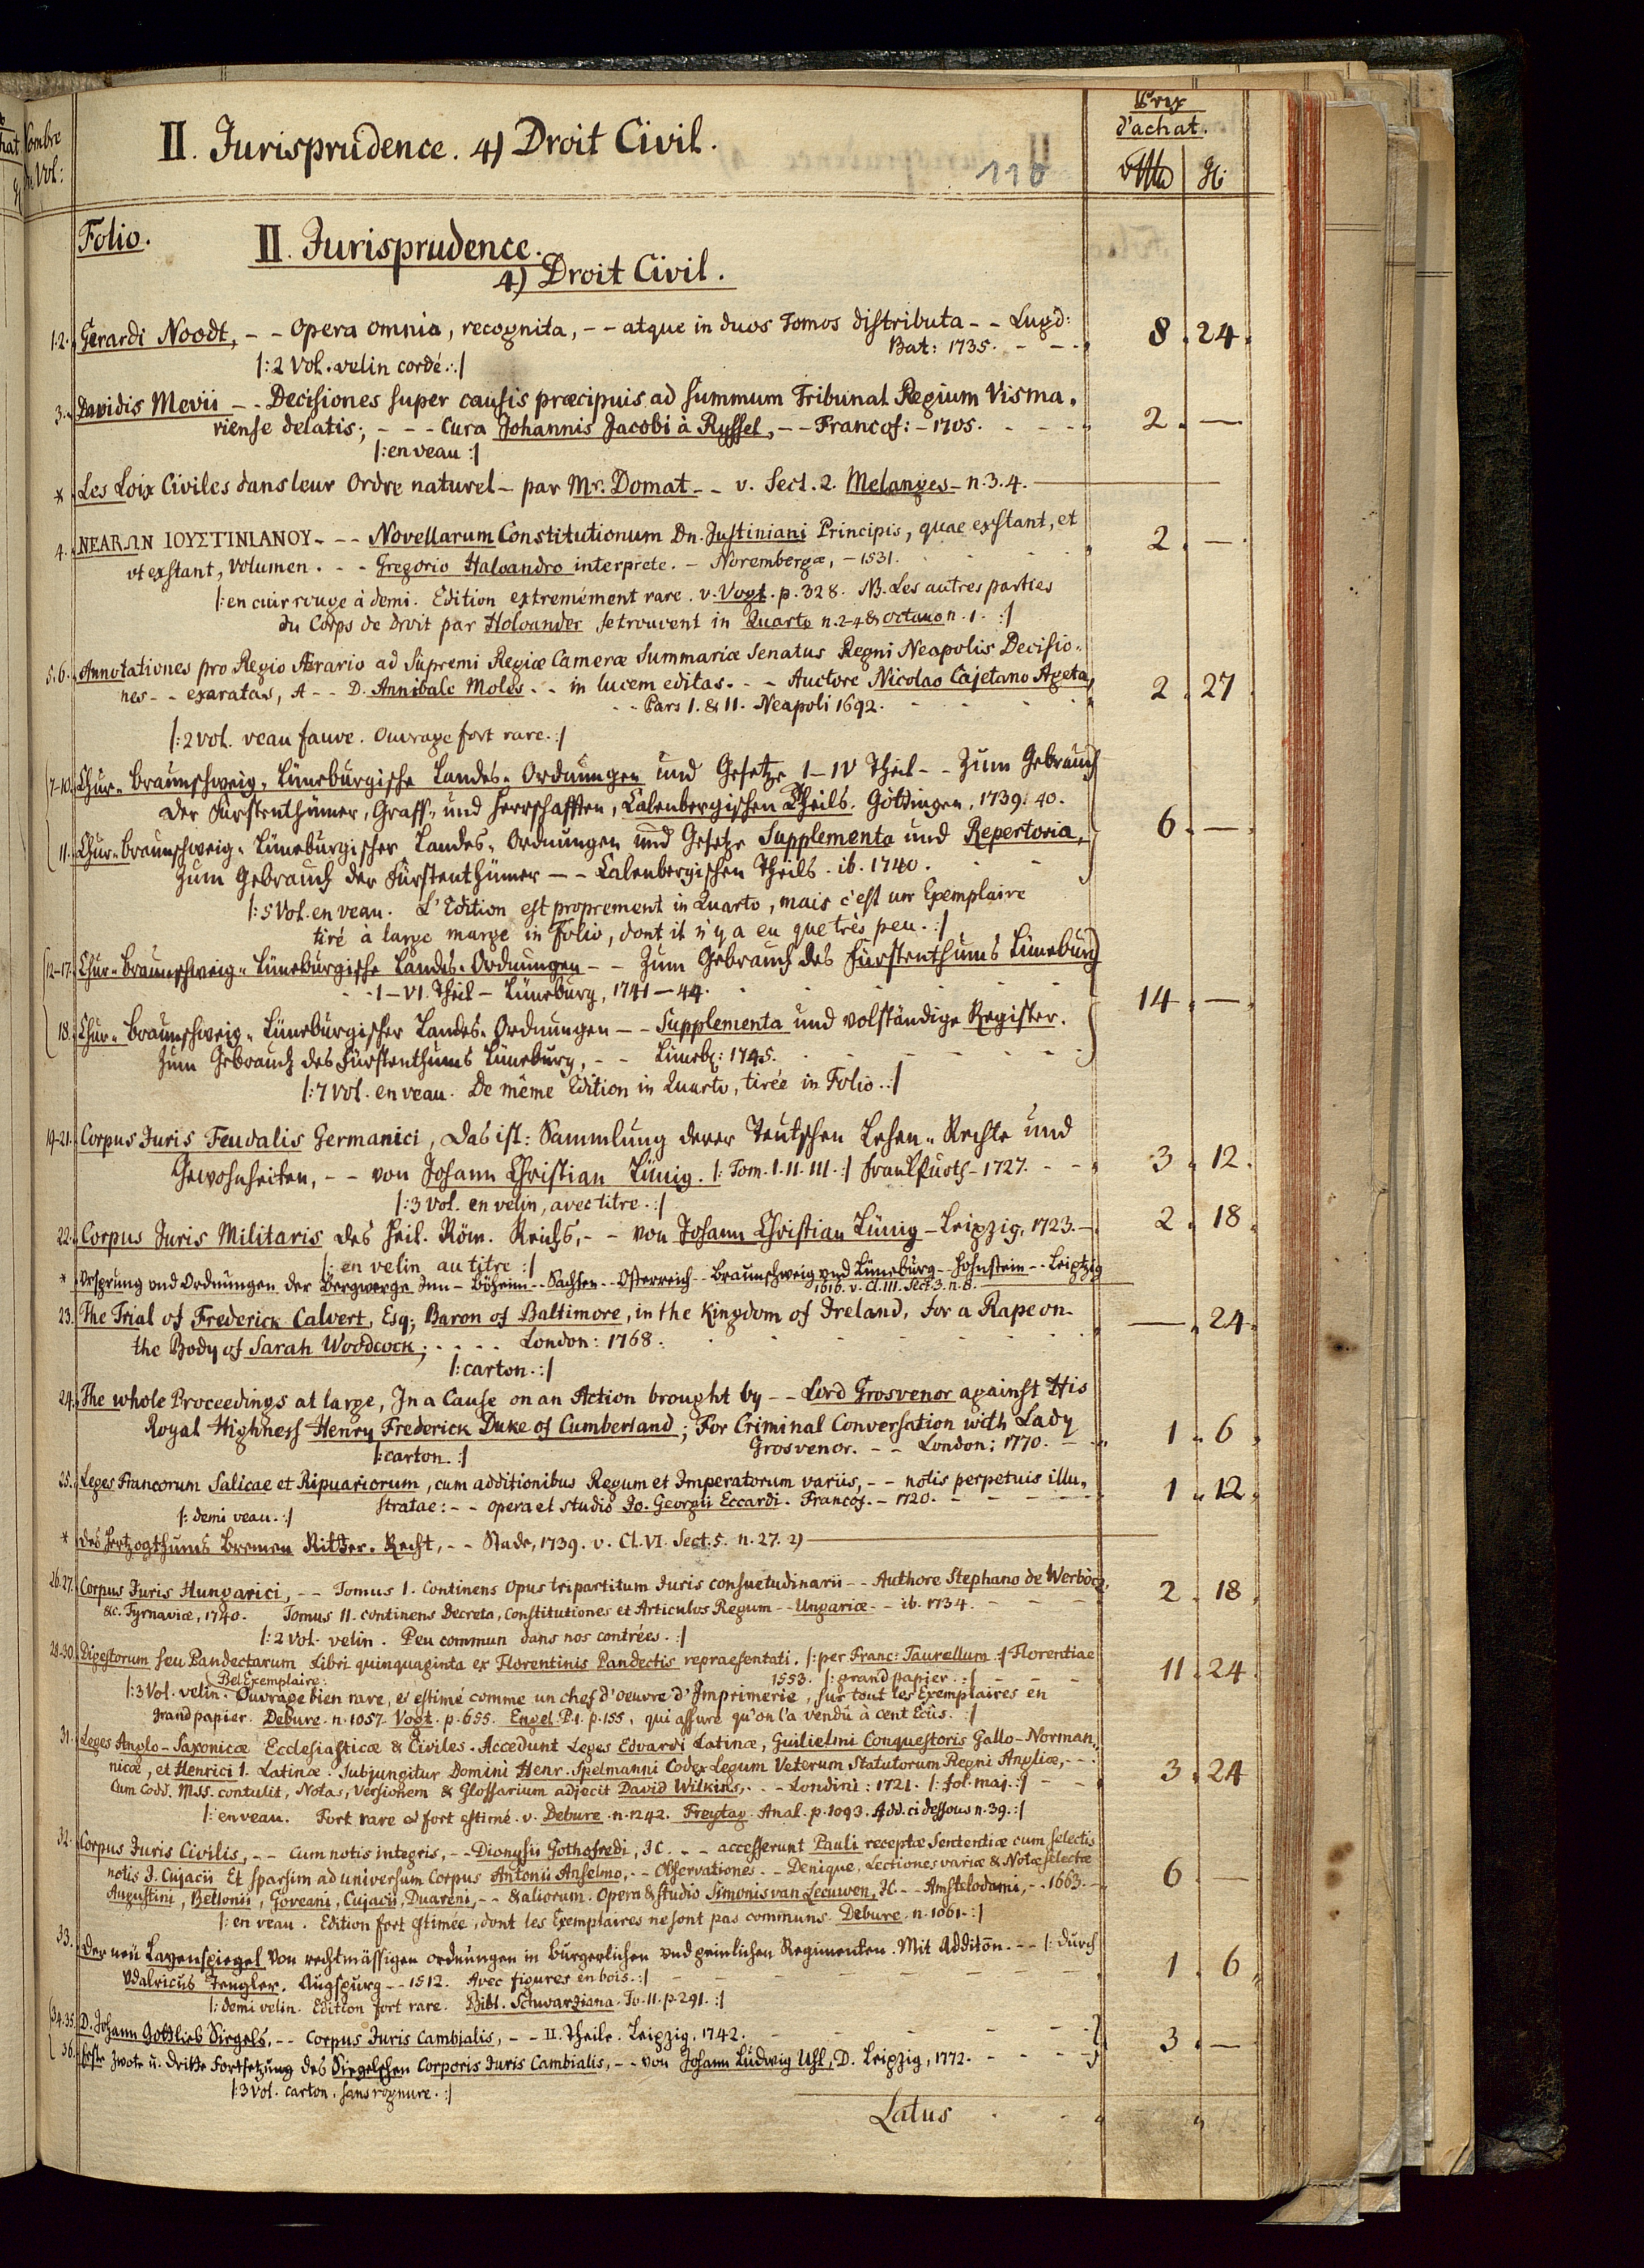 Nombre
de Vol:
II. Jurisprudence. 4) Droit Civil.
110
Prix
d'achat.
Folio.
II. Jurisprudence.
4) Droit Civil.
1.2. Gerardi Noodt, - - Opera omnia, recognita, - - atque in duos Tomos distributa - - Lugd:
Bat: 1735. - - - 8. 24.
|: 2 Vol. velin cordé. :|
3. Davidis Mevii - - Decisiones super causis præcipuis ad summum Tribunal Regium Visma-
riense delatis; - - - Cura Johannis Jacobi à Ryssel, - - Francof: - 1705. - - - 2. —
|: en veau :|
* Les Loix Civiles dans leur Ordre naturel - par Mr. Domat - - v. Sect. 2. Melanges - n. 3. 4.
4. ΝΕΑΡΩΝ ΙΟΥΣΤΙΝΙΑΝΟΥ - - - Novellarum Constitutionum Dn. Justiniani Principis, quae exstant, et
vt exstant, Volumen. - - Gregorio Haloandro interprete. - Norembergæ, - 1531. 2. —
|: en cuir rouge à demi. Edition extremément rare. v. Vogt. p. 328. NB. Les autres parties
du Corps de droit par Holoander se trouvent in Quarto n. 2-4 & octavo n. 1. :|
5.6. Annotationes pro Regio Ærario ad Supremi Regiæ Cameræ Summariæ Senatus Regni Neapolis Decisio-
nes - - exaratas, A - - D. Annibale Moles - - in lucem editas. - - Auctore Nicolao Cajetano Ageta,
- - Pars I. & II. Neapoli 1692. 2. 27
|: 2 vol. veau fauve. Ouvrage fort rare. :|
7-10. Chur-Braunschweig-Lüneburgische Landes-Ordnungen und Gesetze I-IV Theil - - Zum Gebrauch
der Fürstenthümer, Graff- und Herrschafften, Calenbergischen Theils. Göttingen, 1739. 40.
11. Chur-Braunschweig-Lüneburgischer Landes-Ordnungen und Gesetze Supplementa und Repertoria, 6. —
Zum Gebrauch der Fürstenthümer - - Calenbergischen Theils. ib. 1740.
|: 5 Vol. en veau. L'Edition est proprement in Quarto, mais c'est un Exemplaire
tiré à large marge in folio, dont il n'y a eu que très peu. :|
12-17. Chur-Braunschweig-Lüneburgische Landes-Ordnungen - - Zum Gebrauch des Fürstenthums Lüneburg
- - I-VI. Theil - Lüneburg, 1741-44. 14. —
18. Chur-Braunschweig-Lüneburgischer Landes-Ordnungen - - Supplementa und volständige Register.
Zum Gebrauch des Fürstenthums Lüneburg, - - Lüneb: 1745.
|: 7 Vol. en veau. De même Edition in Quarto, tirée in Folio. :|
19-21. Corpus Juris Feudalis Germanici, Das ist: Sammlung derer Teutschen Lehen-Rechte und
Gewohnheiten, - - von Johann Christian Lünig. |: Tom. I. II. III. :| Franckfurth - 1727. - - 3. 12.
|: 3 Vol. en velin, avec titre. :|
22. Corpus Juris Militaris des Heil. Röm. Reichs, - - von Johann Christian Lünig - Leipzig, 1723. - 2. 18.
|: en velin au titre :|
* Ursprung vnd Ordnungen der Bergwerge Inn - Böheim - - Sachsen - - Osterreich - - Braunschweig vnd Lüneburg - - Hohnstein - - Leiptzig
1616. v. Cl. III. Sect. 3. n. 8.
23. The Trial of Frederick Calvert, Esq; Baron of Baltimore, in the Kingdom of Ireland, for a Rape on
the Body of Sarah Woodcock; - - - - London: 1768. — 24.
|: carton. :|
24. The whole Proceedings at large, In a Cause on an Action brought by - - Lord Grosvenor against His
Royal Highness Henry Frederick Duke of Cumberland; For Criminal Conversation with Lady
Grosvenor. - - London; 1770. - 1. 6.
|: carton. :|
25. Leges Francorum Salicae et Ripuariorum, cum additionibus Regum et Imperatorum variis, - - notis perpetuis illu-
stratae: - - opera et studio Jo. Georgii Eccardi. Francof. - 1720. - - - 1. 12.
|: demi veau. :|
* Des Hertzogthums Bremen Ritter-Recht, - - Stade, 1739. v. Cl. VI. Sect. 5. n. 27. 2)
26.27. Corpus Juris Hungarici, - - Tomus I. Continens Opus tripartitum Juris consuetudinarii - - Authore Stephano de Werböcz,
&c. Tyrnaviæ, 1740. Tomus II. continens Decreta, Constitutiones et Articulos Regum - - Ungariæ - - ib. 1734. - - - 2. 18.
|: 2 Vol. velin. Peu commun dans nos contrées. :|
28-30. Digestorum seu Pandectarum Libri quinquaginta ex Florentinis Pandectis repraesentati. |: per Franc: Taurellum :| Florentiae
1553. |: grand papier. :| 11. 24.
Bel Exemplaire.
|: 3 Vol. velin. Ouvrage bien rare, & estimé comme un chef d'oeuvre d'Imprimerie, sur tout les Exemplaires en
grand papier. Debure. n. 1057. Vogt. p. 655. Engel. P. 1. p. 155, qui assure qu'on l'a vendu à cent Ecûs. :|
31. Leges Anglo-Saxonicæ Ecclesiasticæ & Civiles. Accedunt Leges Edvardi Latinæ, Guilielmi Conquestoris Gallo-Norman-
nicæ, et Henrici I. Latinæ. Subjungitur Domini Henr. Spelmanni Codex Legum Veterum Statutorum Regni Angliæ, - -
Cum Codd. Mss. contulit, Notas, Versionem & Glossarium adjecit David Wilkins, - - - Londini: 1721. |: fol. maj. :| - - 3. 24
|: en veau. Fort rare & fort estimé. v. Debure. n. 1242. Freytag. Anal. p. 1093. Add. ci dessous n. 39. :|
32. Corpus Juris Civilis, - - Cum notis integris, - - Dionysii Gothofredi, JC. - - accesserunt Pauli receptæ Sententiæ cum selectis
notis J. Cujacii Et sparsim ad universum Corpus Antonii Anselmo, - - Observationes. - - Denique, Lectiones variæ & Notæ selectæ
Augustini, Bellonii, Goveani, Cujacii, Duareni, - - & aliorum. Opera & studio Simonis van Leeuwen, JC. - - Amstelodami, - - 1663. - 6. —
|: en veau. Edition fort estimée, dont les Exemplaires ne sont pas communs. Debure. n. 1061. :|
33. Der neü Layenspiegel Von rechtmässigen ordnungen in Burgerlichen vnd peinlichen Regimenten. Mit Additōn. - - |: durch
Vdalricus Tengler. Augspurg - - 1512. Avec figures en bois. :| 1. 6.
|: demi velin. Edition fort rare. Bibl. Schwarziana. To. II. p. 291. :|
34.35. D. Johann Gottlieb Siegels, - - Corpus Juris Cambialis, - - II. Theile. Leipzig, 1742. 3. —
36. Erste Zwote u. dritte Fortsetzung des Siegelschen Corporis Juris Cambialis, - - von Johann Ludwig Uhl, D. Leipzig, 1772. - - -
|: 3 Vol. carton. sans rognure. :|
Latus